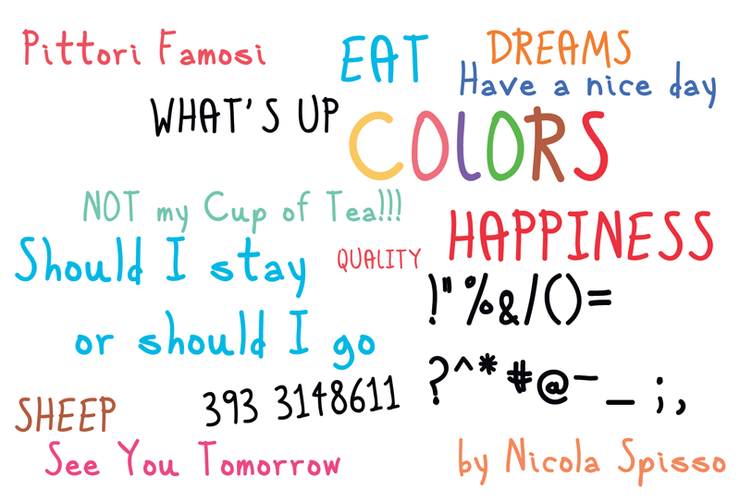 Pittori Famosi
EAT
DREAMS
Have a nice day
WHAT'S UP
COLORS
NOT my Cup of Tea!!!
HAPPINESS
Should I stay
QUALITY
!"%&/()=
or should I go
?^*#@-_;,
SHEEP
393 3148611
See You Tomorrow
by Nicola Spisso